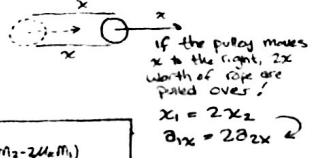 x
x
x
if the pulley moves
x to the right, 2x
worth of rope are
pulled over!
x₁ = 2x₂
a₁ₓ = 2a₂ₓ
m₂-2μₖm₁)